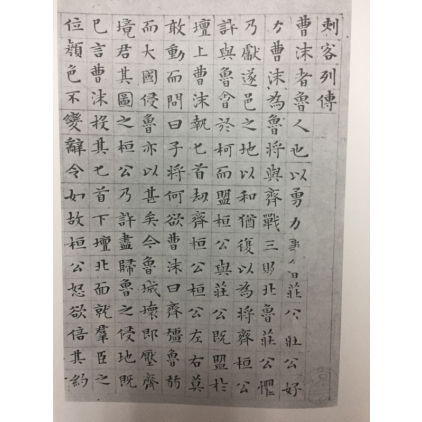 刺客列傳
曹沫者魯人也以勇力事魯莊公莊公好
力曹沫為魯將與齊戰三敗北魯莊公懼
乃獻遂邑之地以和猶復以為將齊桓公
許與魯會於柯而盟桓公與莊公既盟於
壇上曹沫執匕首劫齊桓公桓公左右莫
敢動而問曰子將何欲曹沫曰齊強魯弱
而大國侵魯亦以甚矣今魯城壞即壓齊
境君其圖之桓公乃許盡歸魯之侵地既
已言曹沫投其匕首下壇北面就羣臣之
位顏色不變辭令如故桓公怒欲倍其約